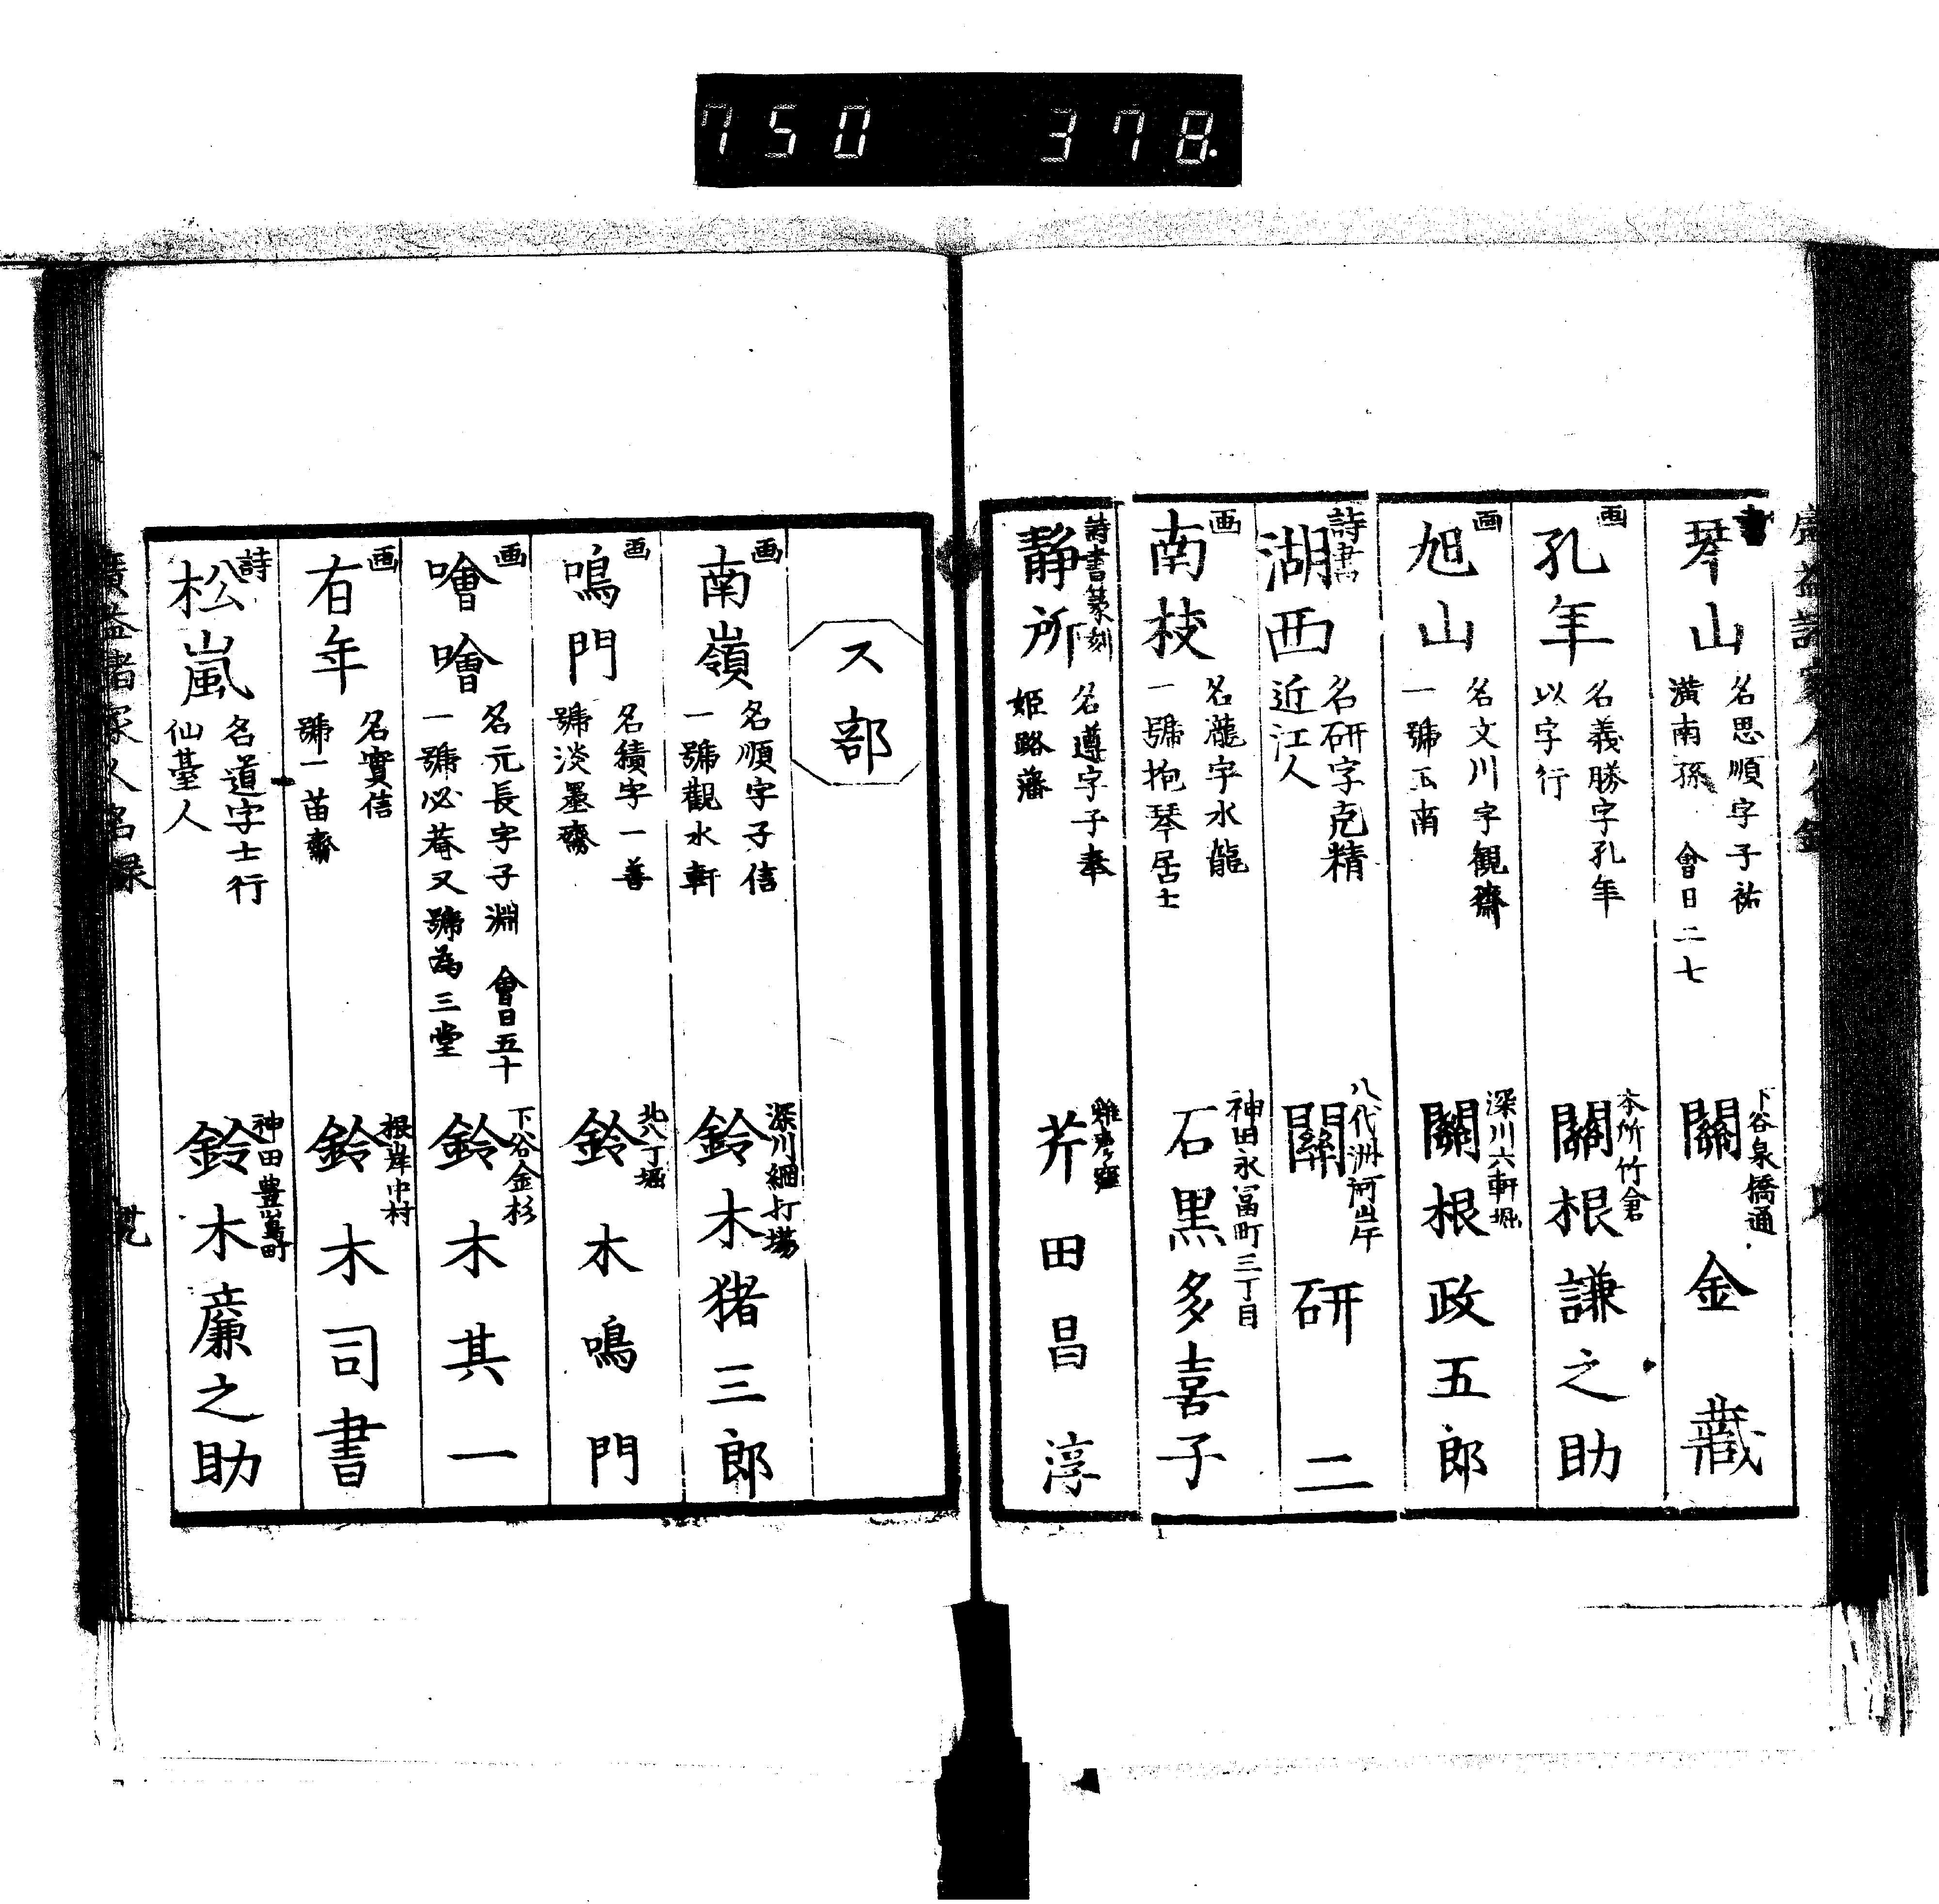 750 378.
書
琴山
名思順字子祐
潢南孫 會日二七
下谷泉橋通
關金藏
画
孔年
名義勝字孔年
以字行
本所竹倉
關根謙之助
画
旭山
名文川字観齋
一號玉南
深川六軒堀
關根政五郎
詩書
湖西
名研字克精
近江人
八代洲河岸
關研二
画
南枝
名瀧字水龍
一號抱琴居士
神田永冨町三丁目
石黒多喜子
詩書篆刻
静所
名遵字子奉
姫路藩
芥田昌淳
ス部
画
南嶺
名順字子信
一號觀水軒
深川網打場
鈴木猪三郎
画
鳴門
名績字一善
號淡墨齋
北八丁堀
鈴木鳴門
画
噲噲
名元長字子淵 會日五十
一號必菴又號為三堂
下谷金杉
鈴木其一
画
有年
名實信
號一苗齋
根岸中村
鈴木司書
詩
松嵐
名道字士行
仙臺人
神田豊嶌町
鈴木廉之助
廣益諸家人名録